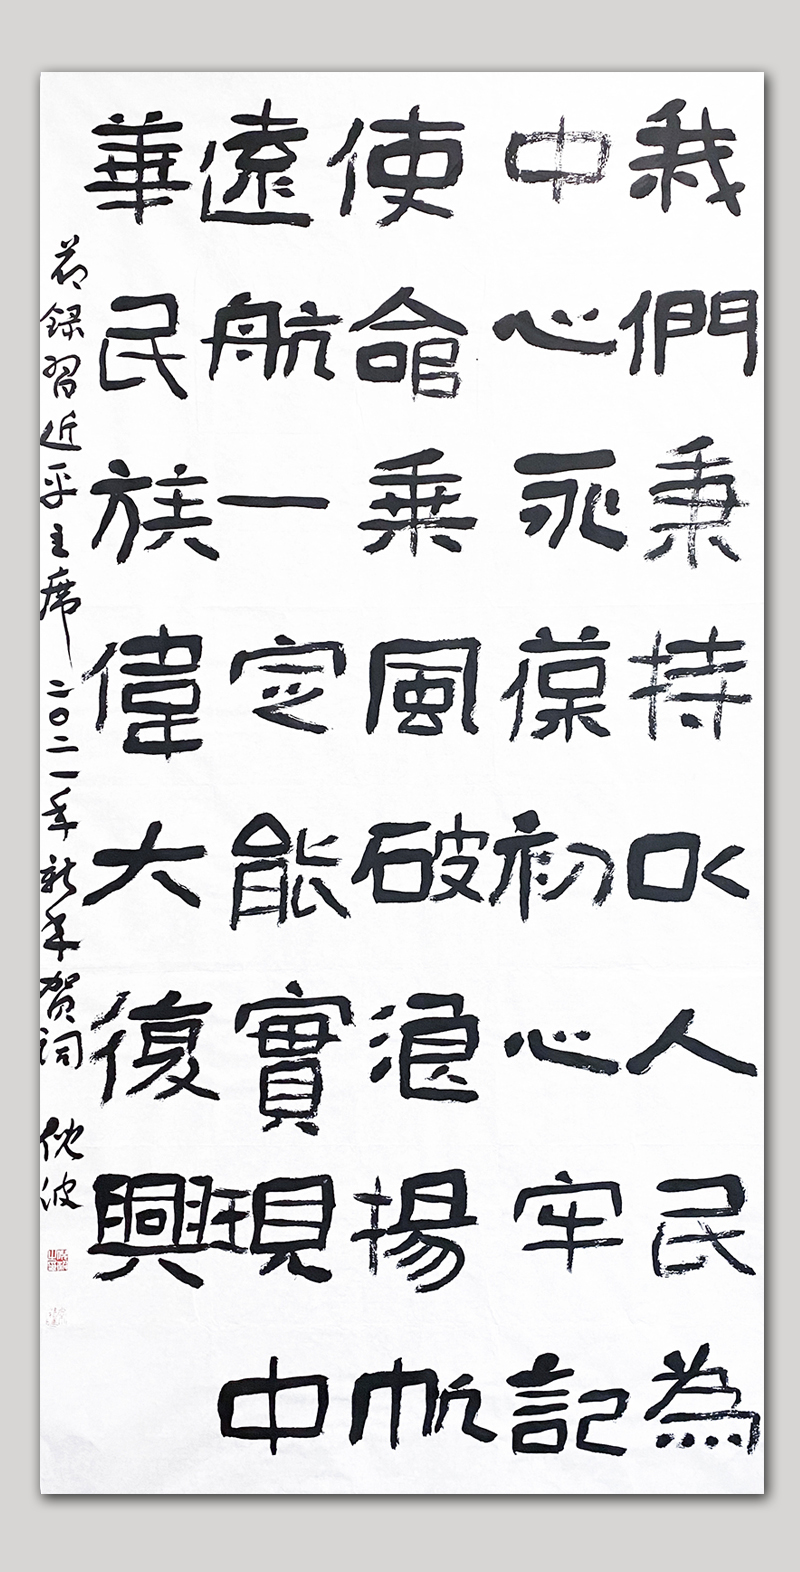 我們秉持以人民為
中心永葆初心牢記
使命乘風破浪揚帆
遠航一定能實現中
華民族偉大復興
节録習近平主席二〇二一年新年贺词 波